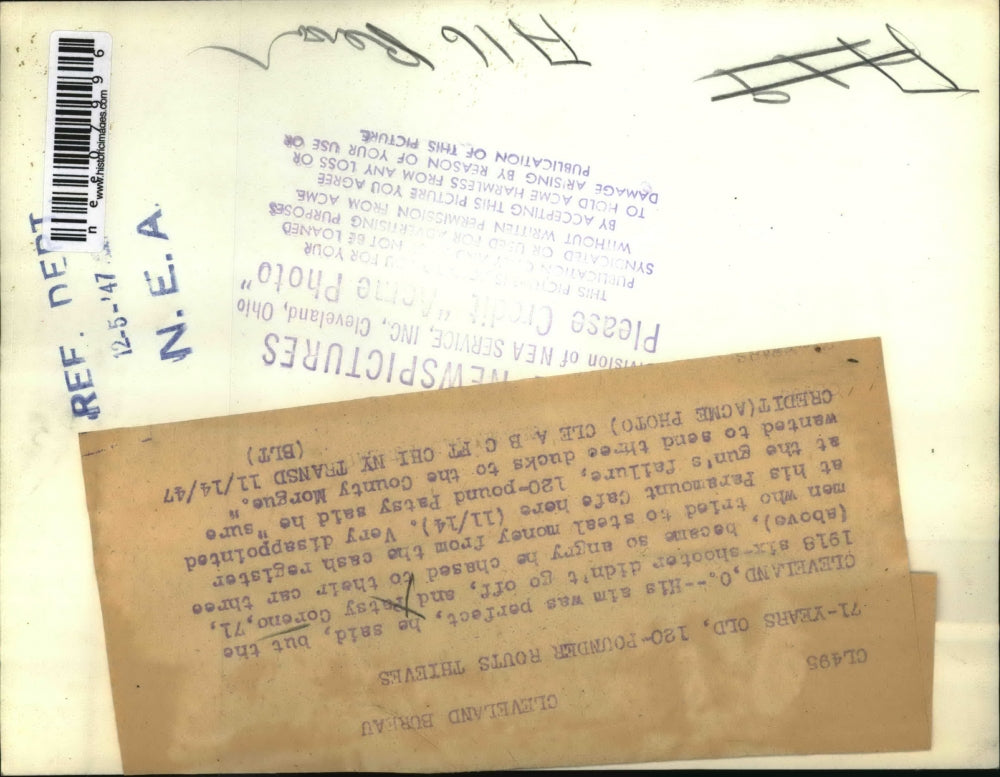 nee07996
www.historicimages.com
REF. DEPT
12-5-'47
N. E. A.
NEWSPICTURES
Division of NEA SERVICE, INC., Cleveland, Ohio
Please Credit "Acme Photo"
THIS PICTURE IS YOU FOR YOUR
PUBLICATION ONLY AND NOT BE LOANED
SYNDICATED OR USED FOR ADVERTISING PURPOSES
WITHOUT WRITTEN PERMISSION FROM ACME.
BY ACCEPTING THIS PICTURE YOU AGREE
TO HOLD ACME HARMLESS FROM ANY LOSS OR
DAMAGE ARISING BY REASON OF YOUR USE OR
PUBLICATION OF THIS PICTURE.
CLEVELAND BUREAU
CL495
71-YEARS OLD, 120-POUNDER ROUTS THIEVES
CLEVELAND, O.--His aim was perfect, he said, but the
1918 six-shooter didn't go off, and Patsy Coreno, 71,
(above), became so angry he chased to their car three
men who tried to steal money from the cash register
at his Paramount Cafe here (11/14). Very disappointed
at the gun's failure, 120-pound Patsy said he "sure
wanted to send three ducks to the County Morgue."
CREDIT(ACME PHOTO) CLE A B C FT CHI NY TRANSD 11/14/47
(BLT)